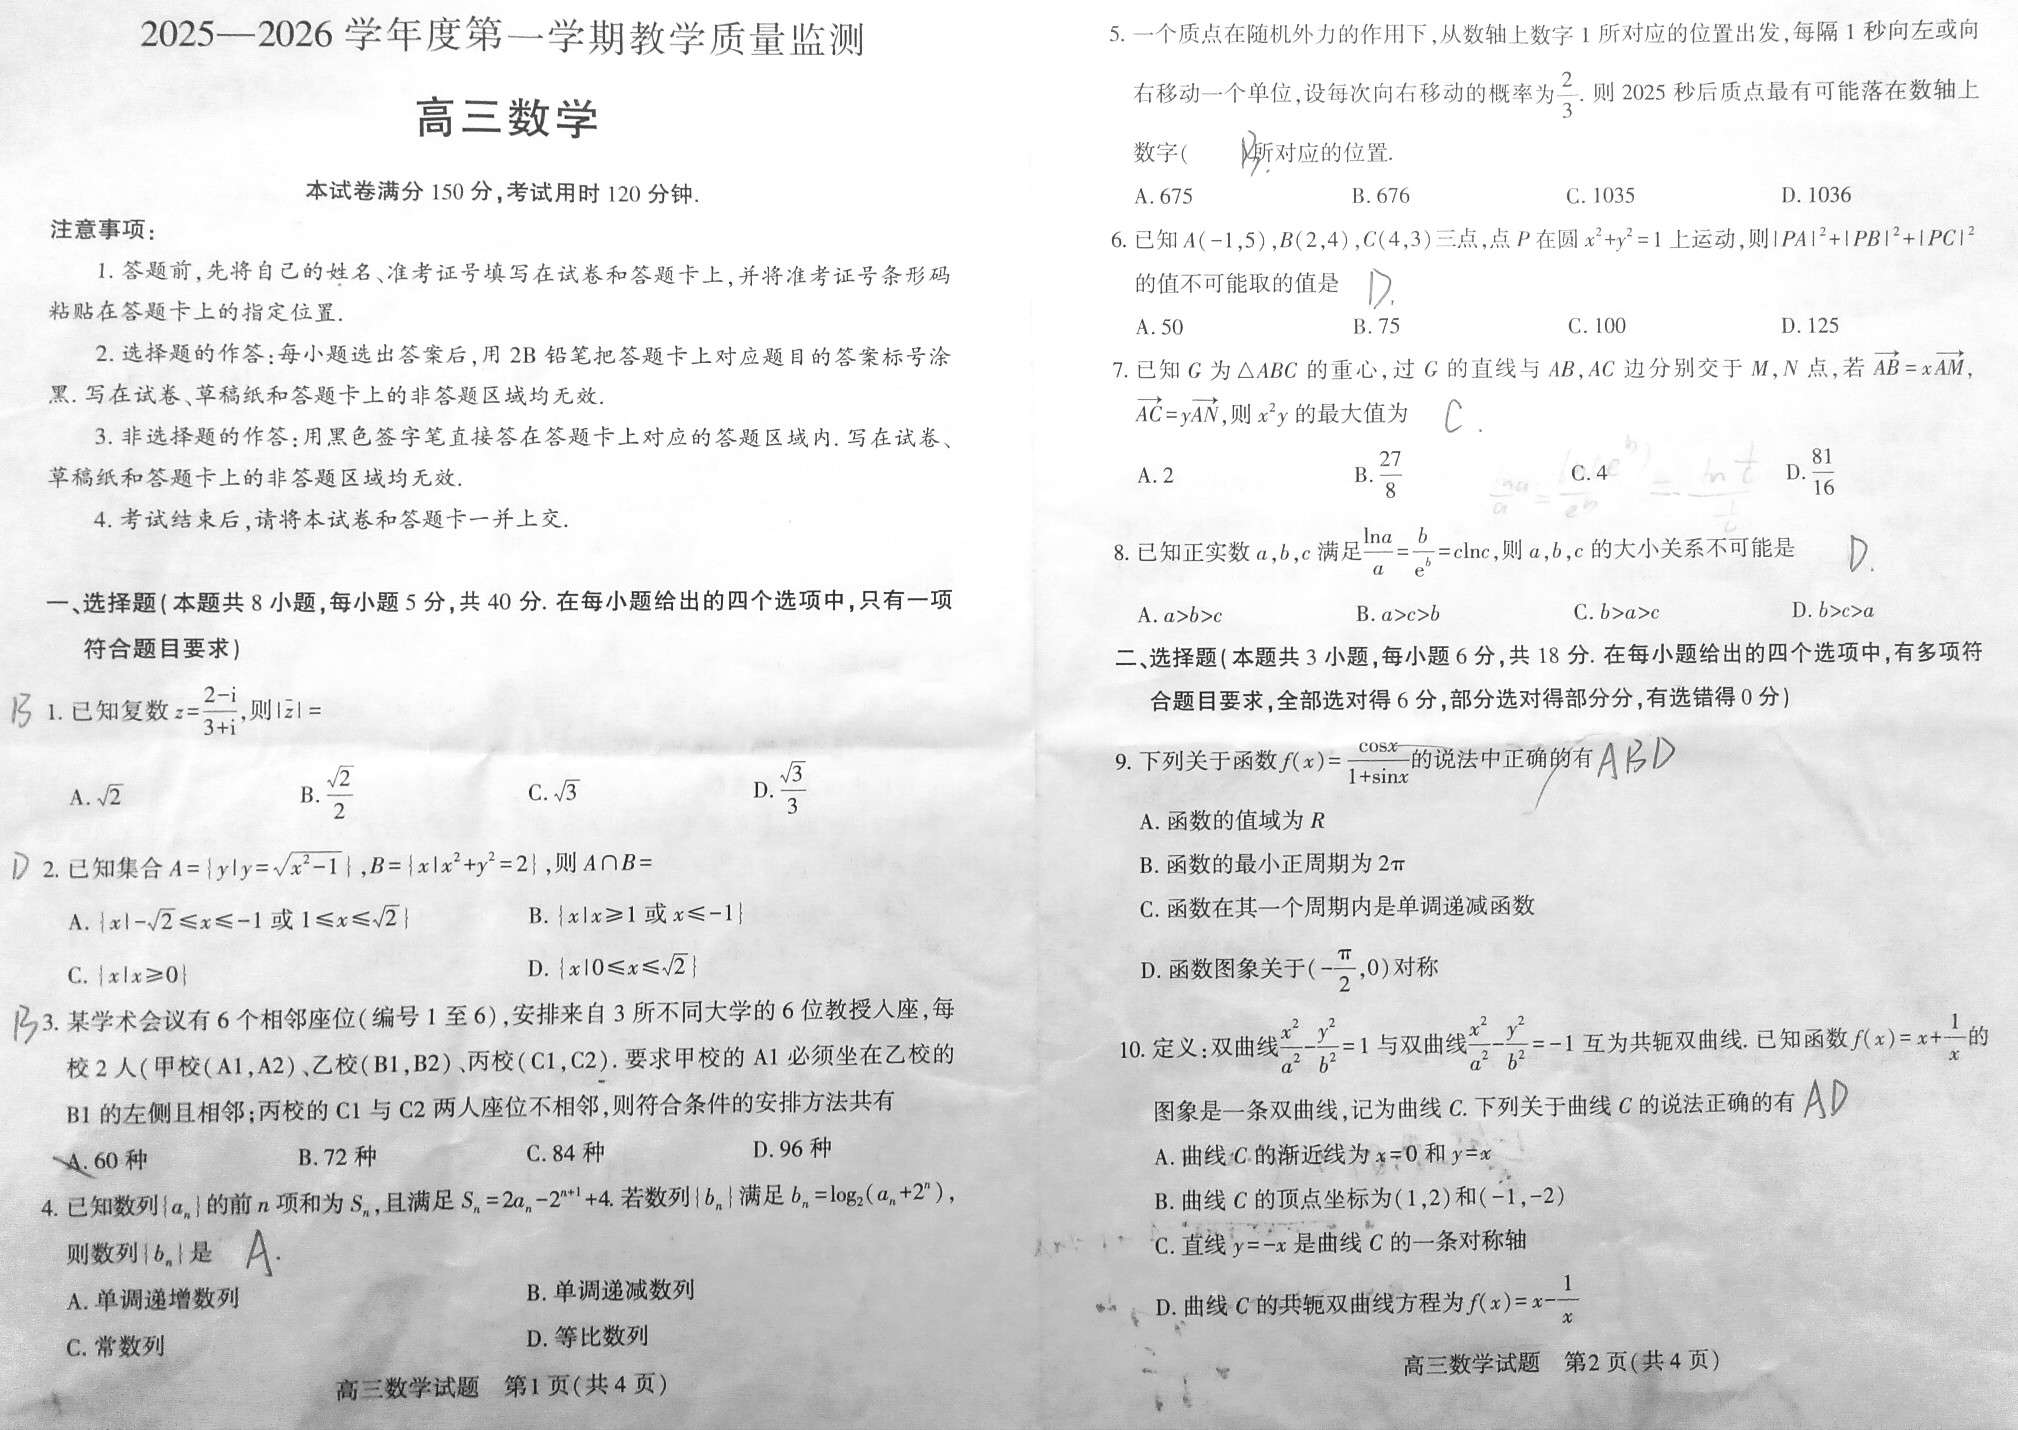 2025—2026 学年度第一学期教学质量监测
高三数学
本试卷满分 150 分,考试用时 120 分钟.
注意事项:
1. 答题前,先将自己的姓名、准考证号填写在试卷和答题卡上,并将准考证号条形码
粘贴在答题卡上的指定位置.
2. 选择题的作答:每小题选出答案后,用 2B 铅笔把答题卡上对应题目的答案标号涂
黑. 写在试卷、草稿纸和答题卡上的非答题区域均无效.
3. 非选择题的作答:用黑色签字笔直接答在答题卡上对应的答题区域内. 写在试卷、
草稿纸和答题卡上的非答题区域均无效.
4. 考试结束后,请将本试卷和答题卡一并上交.
一、选择题(本题共 8 小题,每小题 5 分,共 40 分. 在每小题给出的四个选项中,只有一项
符合题目要求)
B 1. 已知复数 z=(2-i)/(3+i),则|z̄|=
A. √2 B. √2/2 C. √3 D. √3/3
D 2. 已知集合 A={y|y=√(x²-1)},B={x|x²+y²=2},则 A∩B=
A. {x|-√2≤x≤-1 或 1≤x≤√2} B. {x|x≥1 或 x≤-1}
C. {x|x≥0} D. {x|0≤x≤√2}
B 3. 某学术会议有 6 个相邻座位(编号 1 至 6),安排来自 3 所不同大学的 6 位教授入座,每
校 2 人(甲校(A1,A2)、乙校(B1,B2)、丙校(C1,C2). 要求甲校的 A1 必须坐在乙校的
B1 的左侧且相邻;丙校的 C1 与 C2 两人座位不相邻,则符合条件的安排方法共有
A. 60 种 B. 72 种 C. 84 种 D. 96 种
4. 已知数列{aₙ}的前 n 项和为 Sₙ,且满足 Sₙ=2aₙ-2ⁿ⁺¹+4. 若数列{bₙ}满足 bₙ=log₂(aₙ+2ⁿ),
则数列{bₙ}是 A.
A. 单调递增数列 B. 单调递减数列
C. 常数列 D. 等比数列
高三数学试题 第1页(共4页)
5. 一个质点在随机外力的作用下,从数轴上数字 1 所对应的位置出发,每隔 1 秒向左或向
右移动一个单位,设每次向右移动的概率为2/3. 则 2025 秒后质点最有可能落在数轴上
数字( B.所对应的位置.
A. 675 B. 676 C. 1035 D. 1036
6. 已知 A(-1,5),B(2,4),C(4,3)三点,点 P 在圆 x²+y²=1 上运动,则|PA|²+|PB|²+|PC|²
的值不可能取的值是 D.
A. 50 B. 75 C. 100 D. 125
7. 已知 G 为△ABC 的重心,过 G 的直线与 AB,AC 边分别交于 M,N 点,若 AB→=xAM→,
AC→=yAN→,则 x²y 的最大值为 C.
A. 2 B. 27/8 C. 4 D. 81/16
8. 已知正实数 a,b,c 满足lna/a=b/eᵇ=clnc,则 a,b,c 的大小关系不可能是 D.
A. a>b>c B. a>c>b C. b>a>c D. b>c>a
二、选择题(本题共 3 小题,每小题 6 分,共 18 分. 在每小题给出的四个选项中,有多项符
合题目要求,全部选对得 6 分,部分选对得部分分,有选错得 0 分)
9. 下列关于函数 f(x)=cosx/(1+sinx)的说法中正确的有 ABD
A. 函数的值域为 R
B. 函数的最小正周期为 2π
C. 函数在其一个周期内是单调递减函数
D. 函数图象关于(-π/2,0)对称
10. 定义:双曲线x²/a²-y²/b²=1 与双曲线x²/a²-y²/b²=-1 互为共轭双曲线. 已知函数 f(x)=x+1/x的
图象是一条双曲线,记为曲线 C. 下列关于曲线 C 的说法正确的有 AD
A. 曲线 C 的渐近线为 x=0 和 y=x
B. 曲线 C 的顶点坐标为(1,2)和(-1,-2)
C. 直线 y=-x 是曲线 C 的一条对称轴
D. 曲线 C 的共轭双曲线方程为 f(x)=x-1/x
高三数学试题 第2页(共4页)